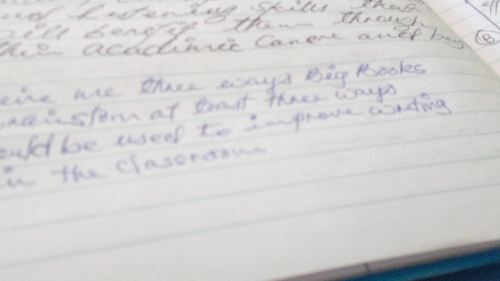 and listening skills that
will benefit them through
their academic career and
are three ways Big Books
brainstorm at least three ways
could be used to improve writing
in the classroom
eff
B